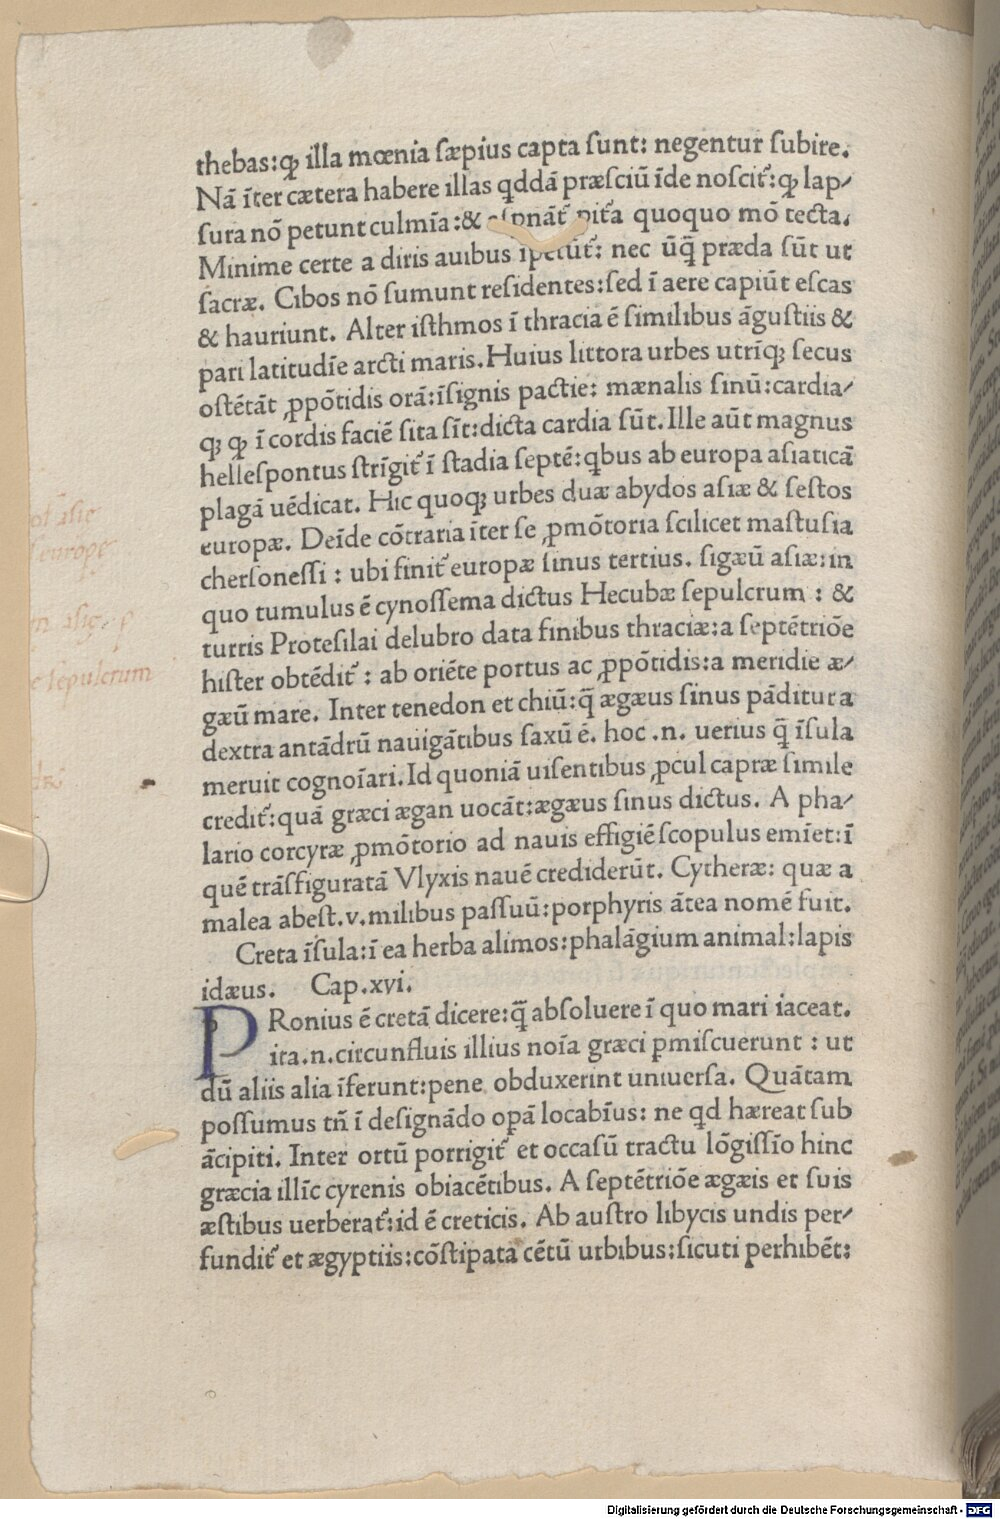 thebas:ꝙ illa mœnia ſæpius capta ſunt: negentur ſubire.
Nā īter cætera habere illas qddā præſciū īde noſcit᷑:ꝙ lap⸗
ſura nō petunt culmīa:& pit᷑a quoquo mō tecta.
Minime certe a diris auibus īpetūt᷑: nec ūq̄ præda ſūt ut
ſacræ. Cibos nō ſumunt reſidentes:ſed ī aere capiūt eſcas
& hauriunt. Alter iſthmos ī thracia ē ſimilibus āguſtiis &
pari latitudīe arcti maris. Huius littora urbes utrīqꝫ ſecus
oſtētāt ꝓpōtidis orā:īſignis pactie: mænalis ſinū:cardia⸗
qꝫ ꝙ ī cordis faciē ſita ſīt:dicta cardia ſūt. Ille aūt magnus
helleſpontus ſtrīgit᷑ ī ſtadia ſeptē:qbus ab europa aſiaticā
plagā uēdicat. Hic quoqꝫ urbes duæ abydos aſiæ & ſeſtos
europæ. Deīde cōtraria īter ſe ꝓmōtoria ſcilicet maſtuſia
cherſoneſſi : ubi finit᷑ europæ ſinus tertius. ſigæū aſiæ:in
quo tumulus ē cynoſſema dictus Hecubæ ſepulcrum : &
turris Proteſilai delubro data finibus thraciæ:a ſeptētriōe
hiſter obtēdit᷑ : ab oriēte portus ac ꝓpōtidis:a meridie æ⸗
gæū mare. Inter tenedon et chiū:q̄ ægæus ſinus pāditur a
dextra antādrū nauigātibus ſaxū ē. hoc .n. uerius q̄ īſula
meruit cognoīari. Id quoniā uiſentibus ꝓcul capræ ſimile
credit᷑:quā græci ægan uocāt:ægæus ſinus dictus. A pha⸗
lario corcyræ ꝓmōtorio ad nauis effigiē ſcopulus emīet:ī
quē trāſfiguratā Vlyxis nauē crediderūt. Cytheræ: quæ a
malea abeſt.v.milibus paſſuū:porphyris ātea nomē fuit.
Creta īſula:ī ea herba alimos:phalāgium animal:lapis
idæus. Cap.xvi.
PRonius ē cretā dicere:q̄ abſoluere ī quo mari iaceat.
ita.n.circunfluis illius noīa græci pmiſcuerunt : ut
dū aliis alia īferunt:pene obduxerint uniuerſa. Quātam
poſſumus tn̄ ī deſignādo opā locabīus: ne qd hæreat ſub
ācipiti. Inter ortū porrigit᷑ et occaſū tractu lōgiſſīo hinc
græcia illīc cyrenis obiacētibus. A ſeptētriōe ægæis et ſuis
æſtibus uerberat᷑:id ē creticis. Ab auſtro libycis undis per⸗
fundit᷑ et ægyptiis:cōſtipata cētū urbibus:ſicuti perhibēt:
aſie
europe
ſepulcrum
Digitalisierung gefördert durch die Deutsche Forschungsgemeinschaft - DFG